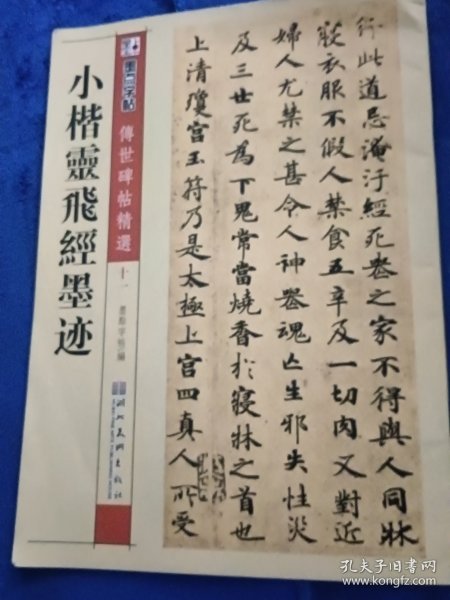 小楷靈飛經墨迹
墨点字帖
傳世碑帖精選
十一
墨點字帖 編
湖北美術出版社
行此道忌淹汙經死喪之家不得與人同牀
寢衣服不假人禁食五辛及一切肉又對近
婦人尤禁之甚令人神喪魂亡生邪失性災
及三世死為下鬼常當燒香扵寢牀之首也
上清瓊宮玉符乃是太極上宮四真人所受
孔夫子旧书网
www.kongfz.com